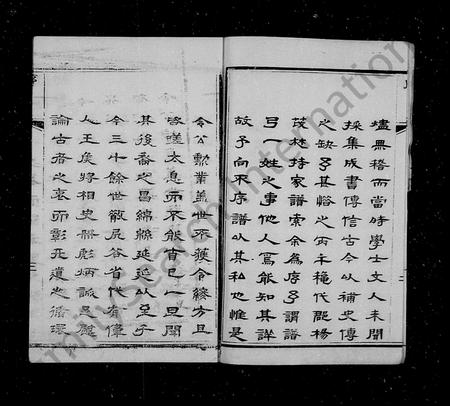 爐無稽而當時學士文人未聞
採集成書傳信古今以補史傳
之缺多其俗之丙午穐代郡楊
茂林持家譜索余為序多謂譜
弓一姓之事他人焉能知其詳
故予向不序譜以其私也惟是
令公勳業蓋世不獲令終方且
咨嗟太息而不能自已一旦聞
其後裔之昌綿緜延延以至于
今三十餘世徽居各省代有偉
人王侯將相史冊彪炳誠足慰
論古者之衷而彰天道之循環
FamilySearch International